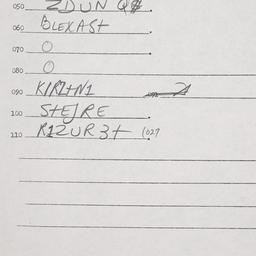 050 ZDUN Q
060 BLEXASt
070 O
080 O
090 KIRItN1
100 StEJRE
110 R1ZUR3t (027